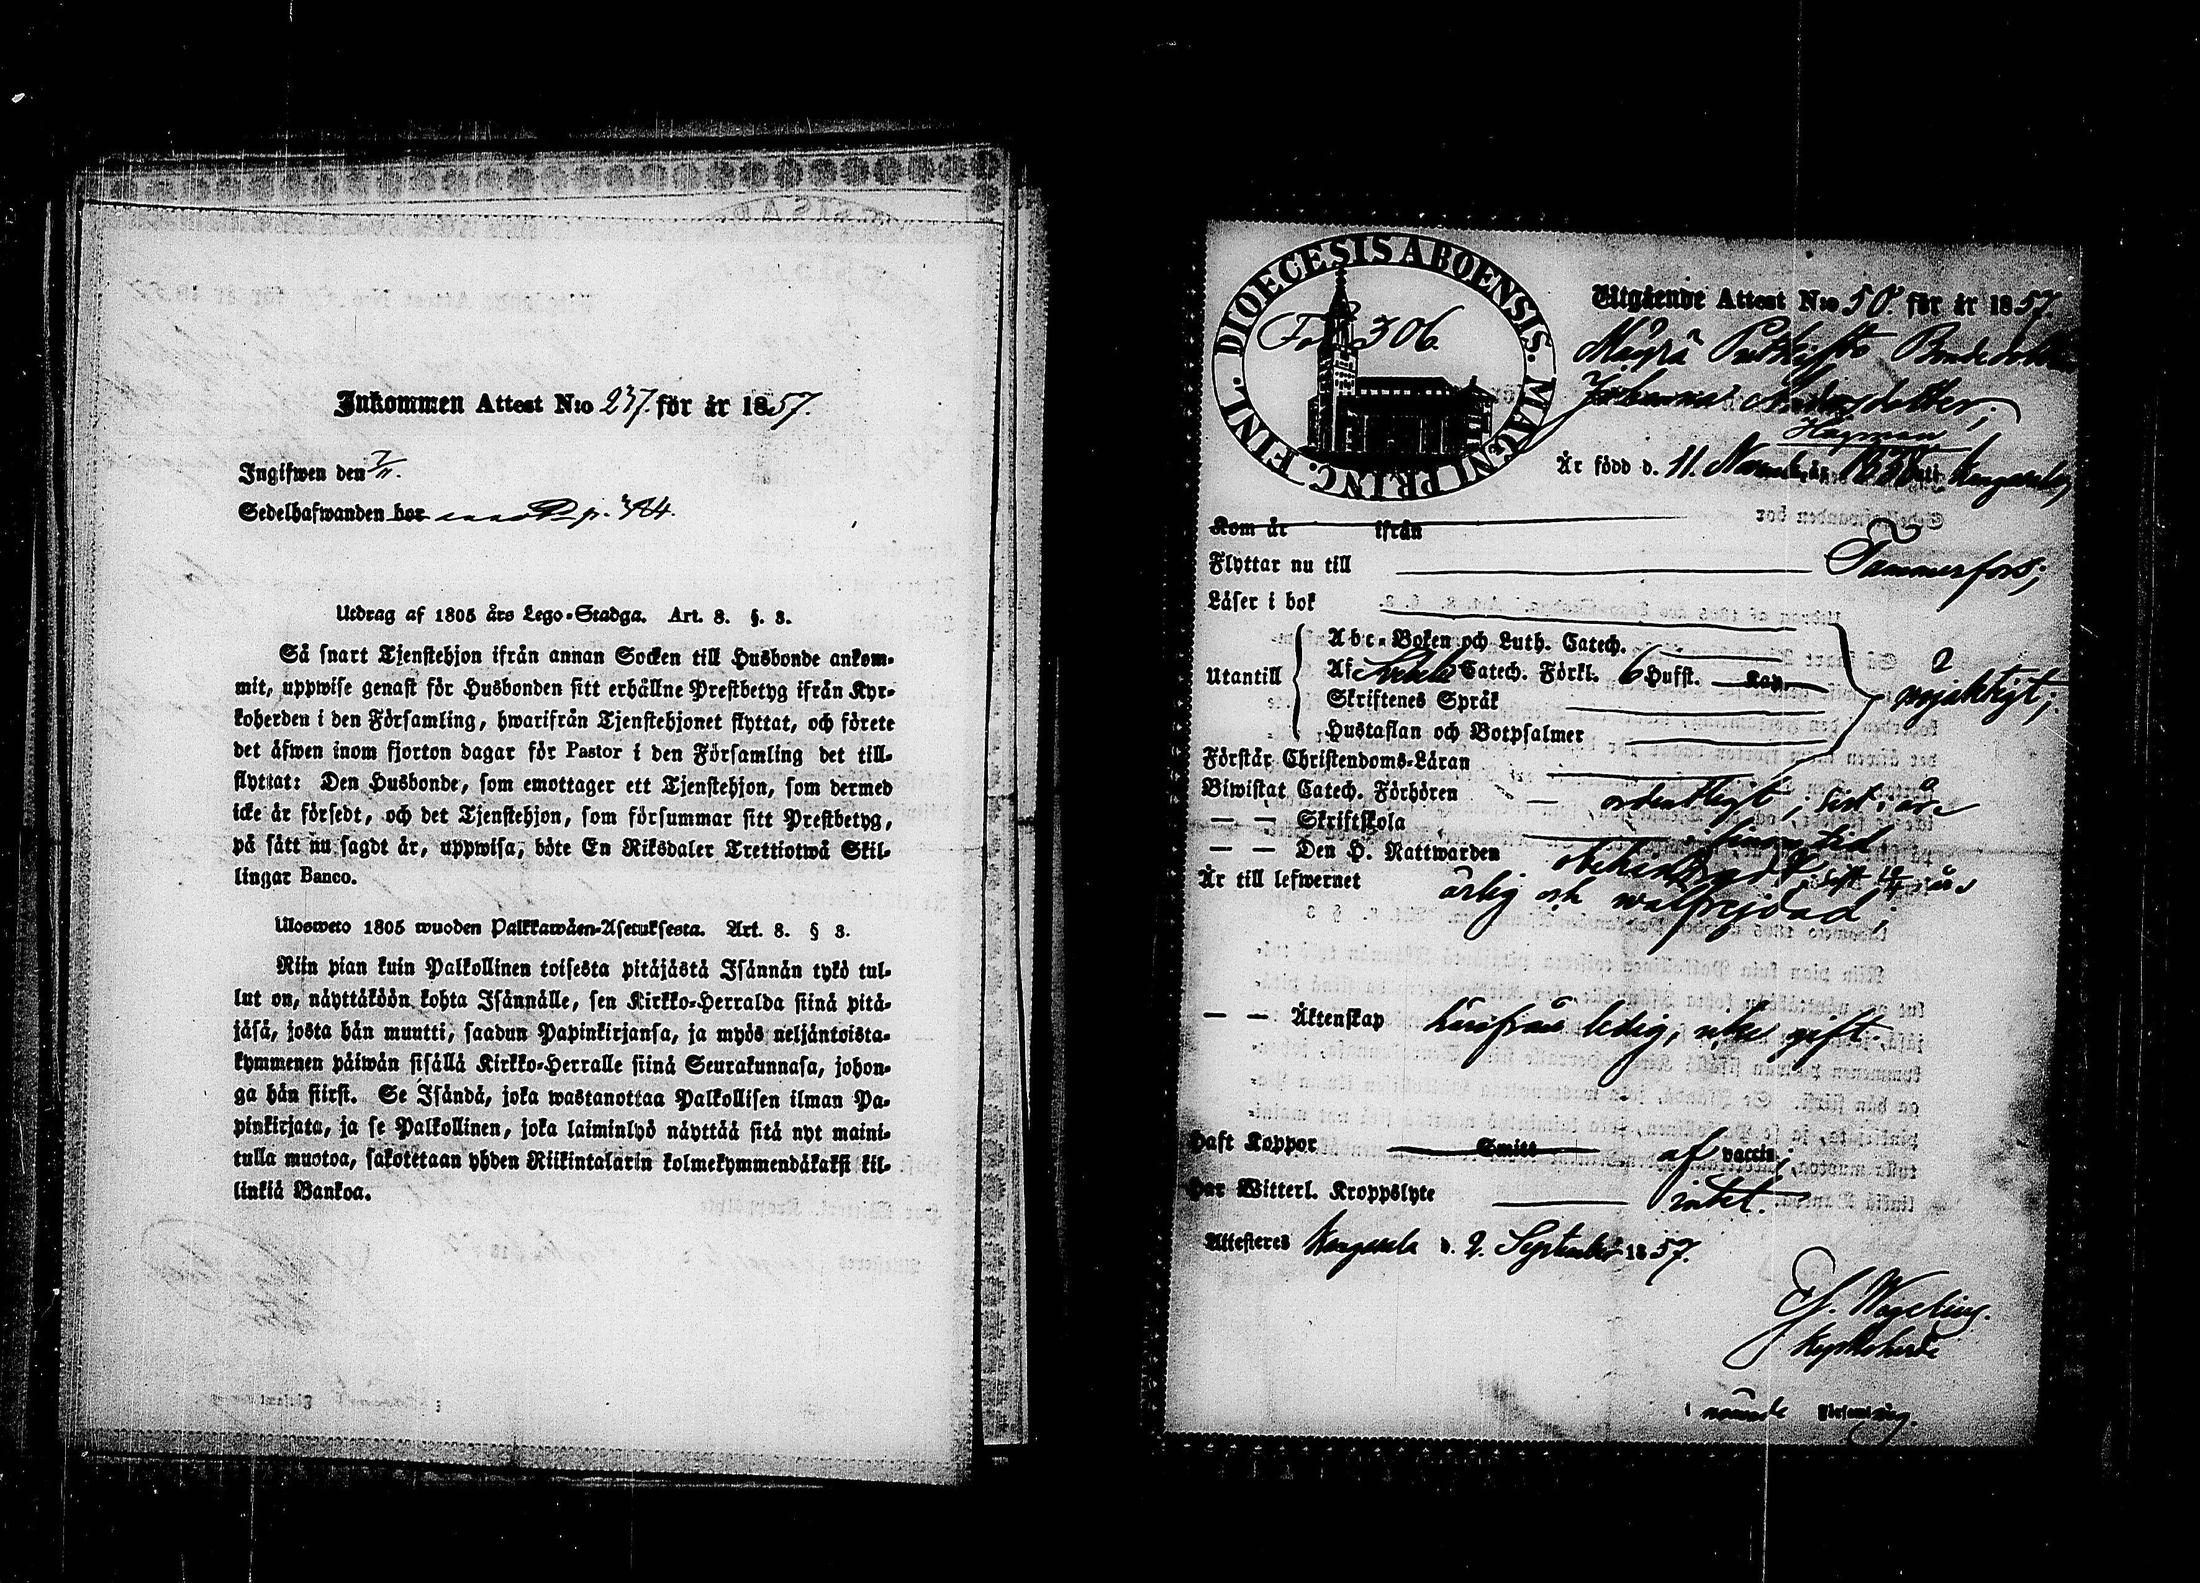 Inkommen Attest N:o 237. för år 1857.
Ingifwen den 7/11.
Sedelhafwanden bor p. 384.
Utdrag af 1805 års Lego-Stadga. Art. 8. §. 3.
Så snart Tjenstehjon ifrån annan Socken till Husbonde ankom-
mit, uppwise genast för Husbonden sitt erhållne Prestbetyg ifrån Kyr-
koherden i den Församling, hwarifrån Tjenstehjonet flyttat, och förete
det äfwen inom fjorton dagar för Pastor i den Församling det till-
flyttat: Den Husbonde, som emottager ett Tjenstehjon, som dermed
icke är försedt, och det Tjenstehjon, som försummar sitt Prestbetyg,
på sätt nu sagdt är, uppwisa, böte En Riksdaler Trettiotwå Skil-
lingar Banco.
Ulosweto 1805 wuoden Palkkawäen-Asetuksesta. Art. 8. § 3.
Niin pian kuin Palkollinen toisesta pitäjästä Isännän tykö tul-
lut on, näyttäköön kohta Isännälle, sen Kirkko-Herralda siinä pitä-
jäsä, josta hän muutti, saadun Papinkirjansa, ja myös neljäntoista-
kymmenen päiwän sisällä Kirkko-Herralle siinä Seurakunnasa, johon-
ga hän siirst. Se Isändä, joka wastanottaa Palkollisen ilman Pa-
pinkirjata, ja se Palkollinen, joka laiminlyö näyttää sitä nyt maini-
tulla muotoa, sakotetaan yhden Riikintalarin kolmekymmendäkaksi kil-
linkiä Bankoa.
DIOECESIS ABOENSIS. MAGNI PRINC. FINL.
Fol 306.
Utgående Attest N:o 50. för år 1857.
Johanna Andersdotter,
Är född d. 11. Kangasala
Kom år ifrån
Flyttar nu till Tammerfors;
Läser i bok
Utantill
Abc-Boken och Luth. Catech.
Af Catech. Förkl. 6 Hufst. Kap.
Skriftenes Språk
Hustaflan och Botpsalmer
nöjaktigt;
Förstår Christendoms-Läran
Biwistat Catech. Förhören ordentligt; sist i år
— — Skriftskola i sinom tid
— — Den H. Nattwarden obehindradt, sist i år
Är till lefwernet ärlig och wälfrejdad;
— — Äktenskap härifrån ledig, icke gift.
Haft Koppor Smitt af vaccin;
Har Witterl. Kroppslyte intet.
Attesteras Kangasala d. 2. September 1857.
Kyrkoherde
i nämnde Församling.